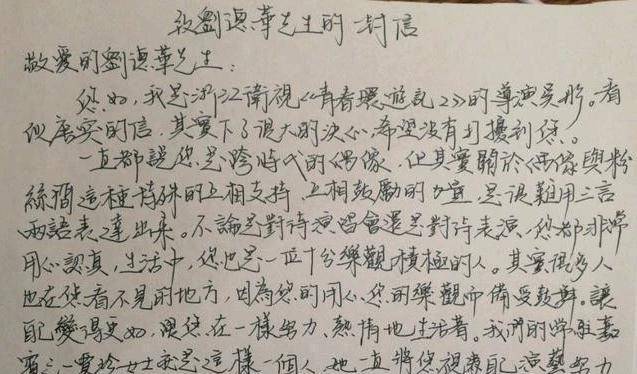 致劉德華先生的一封信
敬愛的劉德華先生：
您好，我是浙江衛視《青春環遊記2》的導演吳彤。看
似唐突的信，其實下了很大的決心，希望沒有打擾到您。
一直都說您是跨時代的偶像，但其實關於偶像與粉
絲間這種特殊的互相支持、互相鼓勵的力量，是很難用三言
兩語表達出來。不論是對待演唱會還是對待表演，您都非常
用心認真，生活中，您也是一位十分樂觀積極的人。其實很多人
也在您看不見的地方，因為您的用心、您的樂觀而備受鼓舞。讓
自己變得更好，跟您在一樣努力、熱情地生活著。我們的常駐嘉
賓之一賈玲女士就是這樣一個人，她一直將您視為自己演藝努力